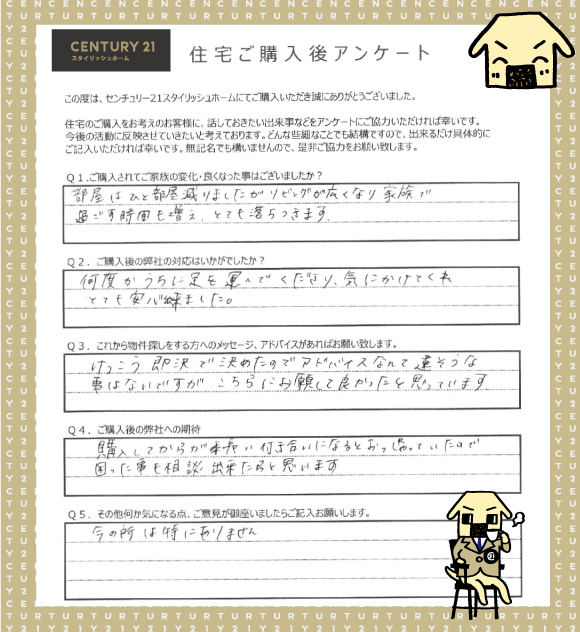 CENTURY 21
スタイリッシュホーム
住宅ご購入後アンケート
この度は、センチュリー21スタイリッシュホームにてご購入いただき誠にありがとうございました。
住宅のご購入をお考えのお客様に、話しておきたい出来事などをアンケートにご協力いただければ幸いです。
今後の活動に反映させていきたいと考えております。どんな些細なことでも結構ですので、出来るだけ具体的に
ご記入いただければ幸いです。無記名でも構いませんので、是非ご協力をお願い致します。
Q1.ご購入されてご家族の変化・良くなった事はございましたか？
部屋はひと部屋減りましたがリビングが広くなり家族で
過ごす時間も増え、とても落ちつきます。
Q2．ご購入後の弊社の対応はいかがでしたか？
何度かうちに足を運んでくださり、気にかけてくれ
とても安心出来ました。
Q3．これから物件探しをする方へのメッセージ、アドバイスがあればお願い致します。
けっこう即決で決めたのでアドバイスなんて違そうな
事はないですが こちらにお願いして良かったと思っています
Q4．ご購入後の弊社への期待
購入してからが長い付き合いになるとおっしゃっていたので
困った事も相談出来たらと思います
Q5．その他何か気になる点、ご意見が御座いましたらご記入お願いします。
今の所は特にありません